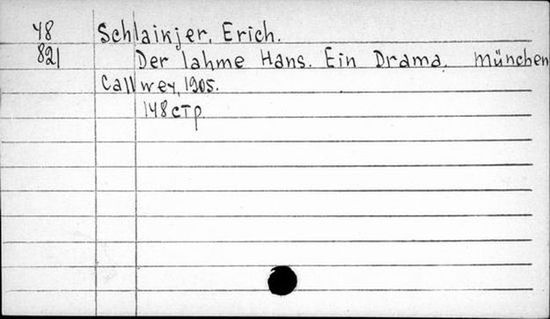 48 Schlaikjer, Erich.
821 Der lahme Hans. Ein Drama. München
Callwey, 1905.
148 стр